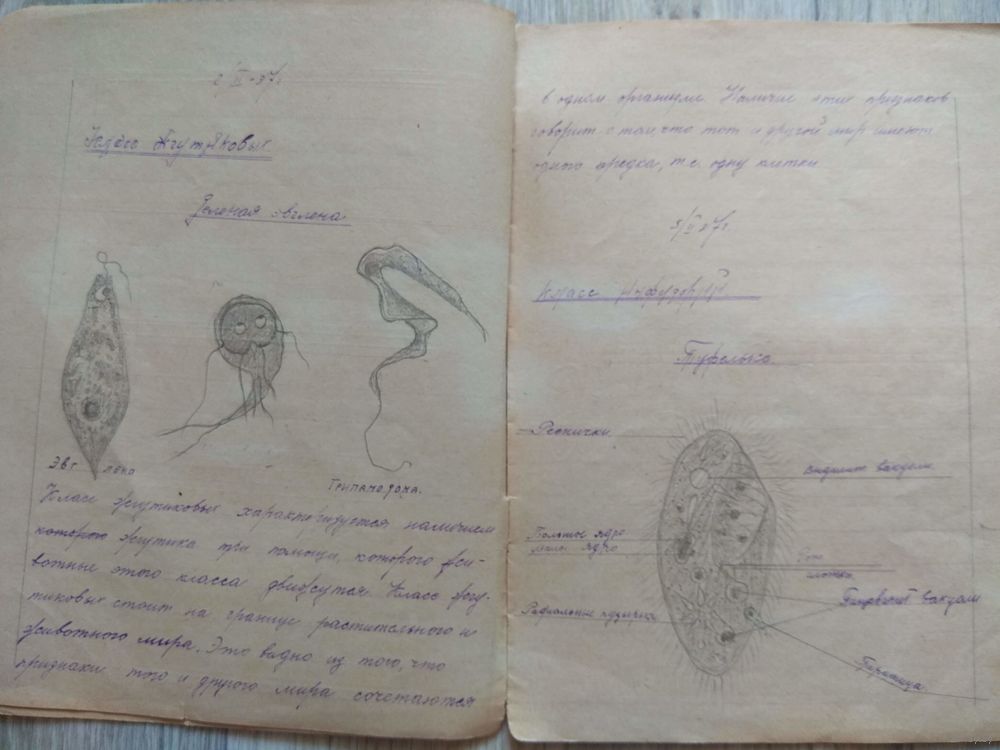 2/II-37г.
Класс Жгутиковых
Зеленая эвглена
Эвглена
Трипанозома.
Класс жгутиковых характеризуется наличием
которого жгутика при помощи, которого жи-
вотные этого класса движутся. Класс жгу-
тиковых стоит на границе растительного и
животного мира. Это видно из того, что
признаки того и другого мира сочетаются
в одном организме. Наличие этих признаков
говорит о том что тот и другой мир имеют
одного предка, т.е. одну клетку
5/II 37г.
Класс Инфузорий
Туфелька
Реснички
Большое ядро
малое ядро
Радиальные пузырьки
вакуоли
Рот
глотка
вакуоли